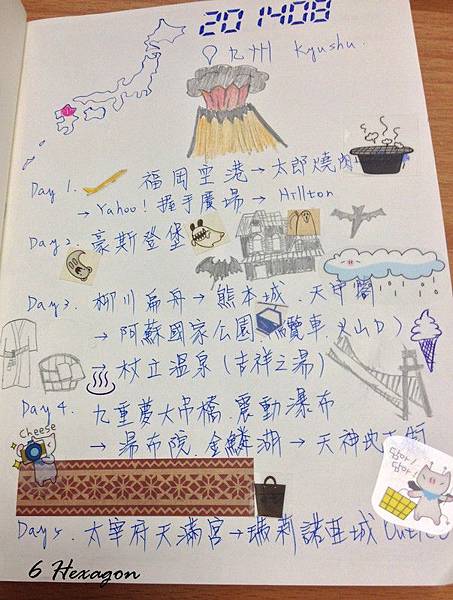 201408
九州 Kyushu.
Day 1. 福岡空港→太郎燒肉
→Yahoo! 握手廣場→ Hillton
Day 2. 豪斯登堡
Day 3. 柳川扁舟→熊本城、天守閣
→阿蘇國家公園 纜車 火山
→杖立溫泉(吉祥之湯)
Day 4. 九重夢大吊橋.震動瀑布
Cheese
→湯布院.金鱗湖→天神地下街
담아! 담아!
Day 5. 太宰府天滿宮→瑪莉諾亞城 Outlet
6 Hexagon